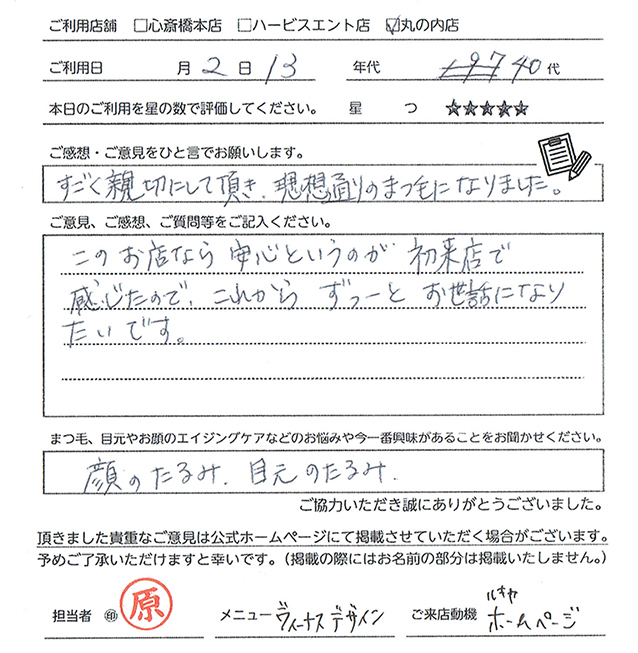 ご利用店舗 □心斎橋本店 □ハービスエント店 ☑丸の内店
ご利用日 月 2 日 13 年代 197 40 代
本日のご利用を星の数で評価してください。 星 つ ★★★★★
ご感想・ご意見をひと言でお願いします。
すごく親切にして頂き、理想通りのまつ毛になりました。
ご意見、ご感想、ご質問等をご記入ください。
このお店なら 安心というのが 初来店で
感じたので、これから ずっーと お世話になり
たいです。
まつ毛、目元やお顔のエイジングケアなどのお悩みや今一番興味があることをお聞かせください。
顔のたるみ、目元のたるみ.
ご協力いただき誠にありがとうございました。
頂きました貴重なご意見は公式ホームページにて掲載させていただく場合がございます。
予めご了承いただけますと幸いです。（掲載の際にはお名前の部分は掲載いたしません。）
担当者 ㊞ 原 メニュー ヴィーナスデザイン ご来店動機 ルキヤ ホームページ